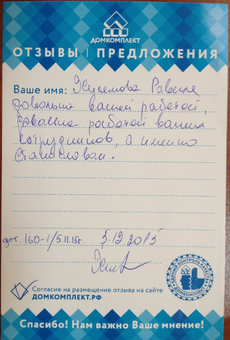 ДОМКОМПЛЕКТ
ОТЗЫВЫ | ПРЕДЛОЖЕНИЯ
Ваше имя:
довольна вашей работой,
работой ваших
сотрудников, а именно
Станиславом.
дог. 160-1/5.11.15г. 3.12.2015
Согласие на размещение отзыва на сайте
ДОМКОМПЛЕКТ.РФ
Спасибо! Нам важно Ваше мнение!